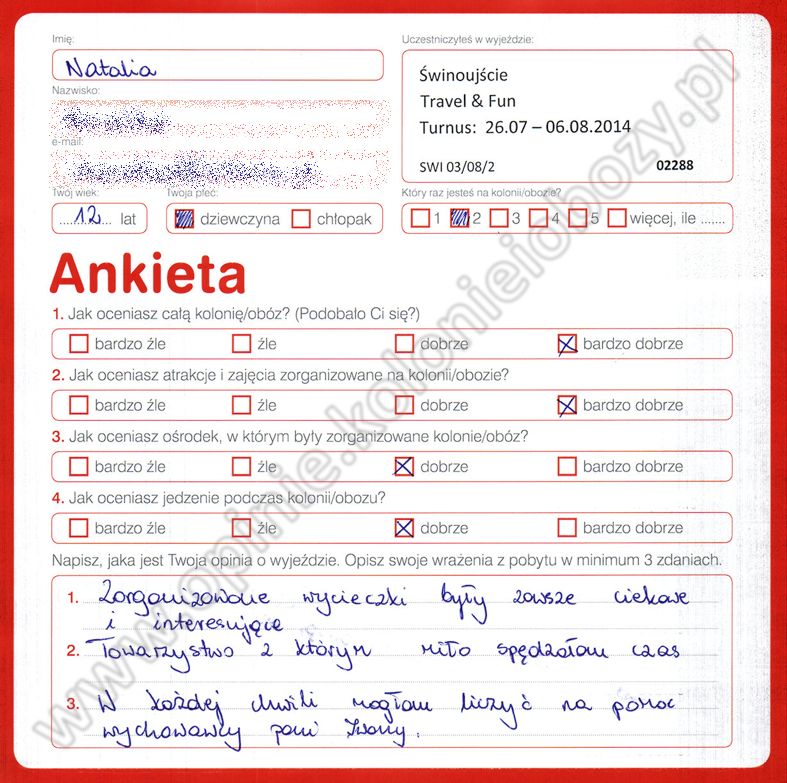 Imię:
Natalia
Nazwisko:
e-mail:
Twój wiek:
12 lat
Twoja płeć:
dziewczyna chłopak
Uczestniczyłeś w wyjeździe:
Świnoujście
Travel & Fun
Turnus: 26.07 – 06.08.2014
SWI 03/08/2 02288
Który raz jesteś na kolonii/obozie?
1 2 3 4 5 więcej, ile .......
Ankieta
1. Jak oceniasz całą kolonię/obóz? (Podobało Ci się?)
bardzo źle źle dobrze bardzo dobrze
2. Jak oceniasz atrakcje i zajęcia zorganizowane na kolonii/obozie?
bardzo źle źle dobrze bardzo dobrze
3. Jak oceniasz ośrodek, w którym były zorganizowane kolonie/obóz?
bardzo źle źle dobrze bardzo dobrze
4. Jak oceniasz jedzenie podczas kolonii/obozu?
bardzo źle źle dobrze bardzo dobrze
Napisz, jaka jest Twoja opinia o wyjeździe. Opisz swoje wrażenia z pobytu w minimum 3 zdaniach.
1. Zorganizowane wycieczki były zawsze ciekawe
i interesujące
2. Towarzystwo z którym miło spędzałam czas
3. W każdej chwili mogłam liczyć na pomoc
wychowawcy pani Iwony.
www.opinie.kolonieiobozy.pl